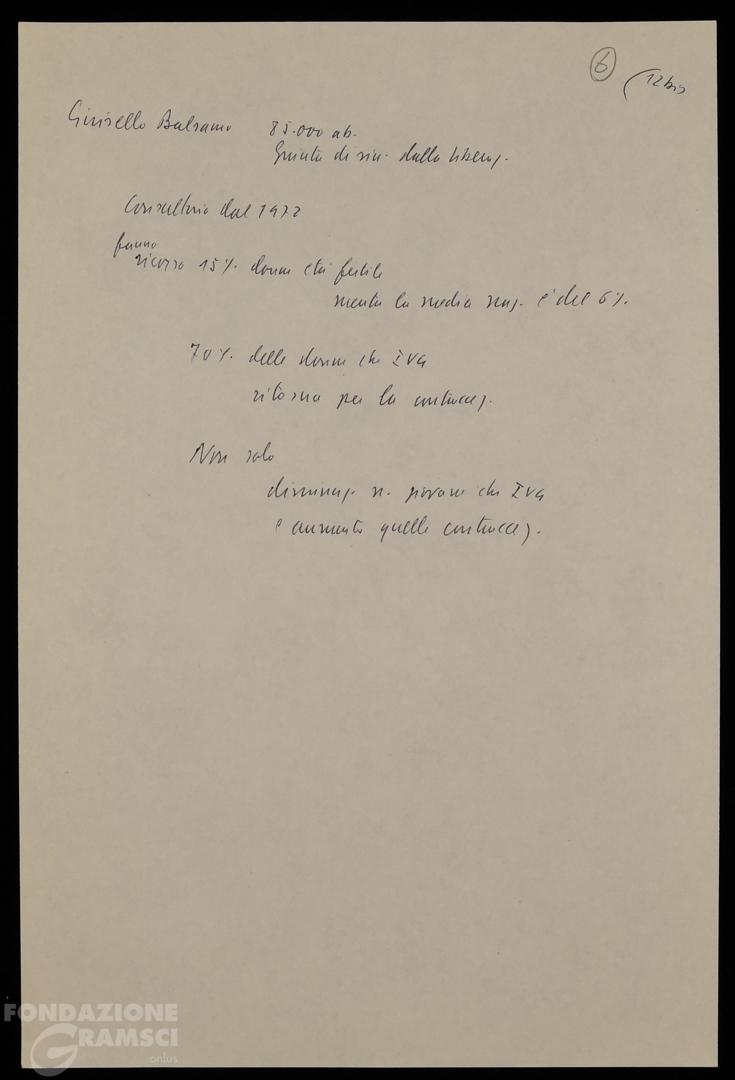 6
(12bis
Cinisello Balsamo 85.000 ab.
Giunta di sin. dalla Liberaz.
Consultorio dal 1972
fanno
ricorso 15% donne età fertile
mentre la media naz. è del 6%.
70% delle donne che IVG
ritorna per la contraccez.
Non solo
diminuz. n. giovani che IVG
e aumento quelle contraccez.
FONDAZIONE
GRAMSCI
onlus